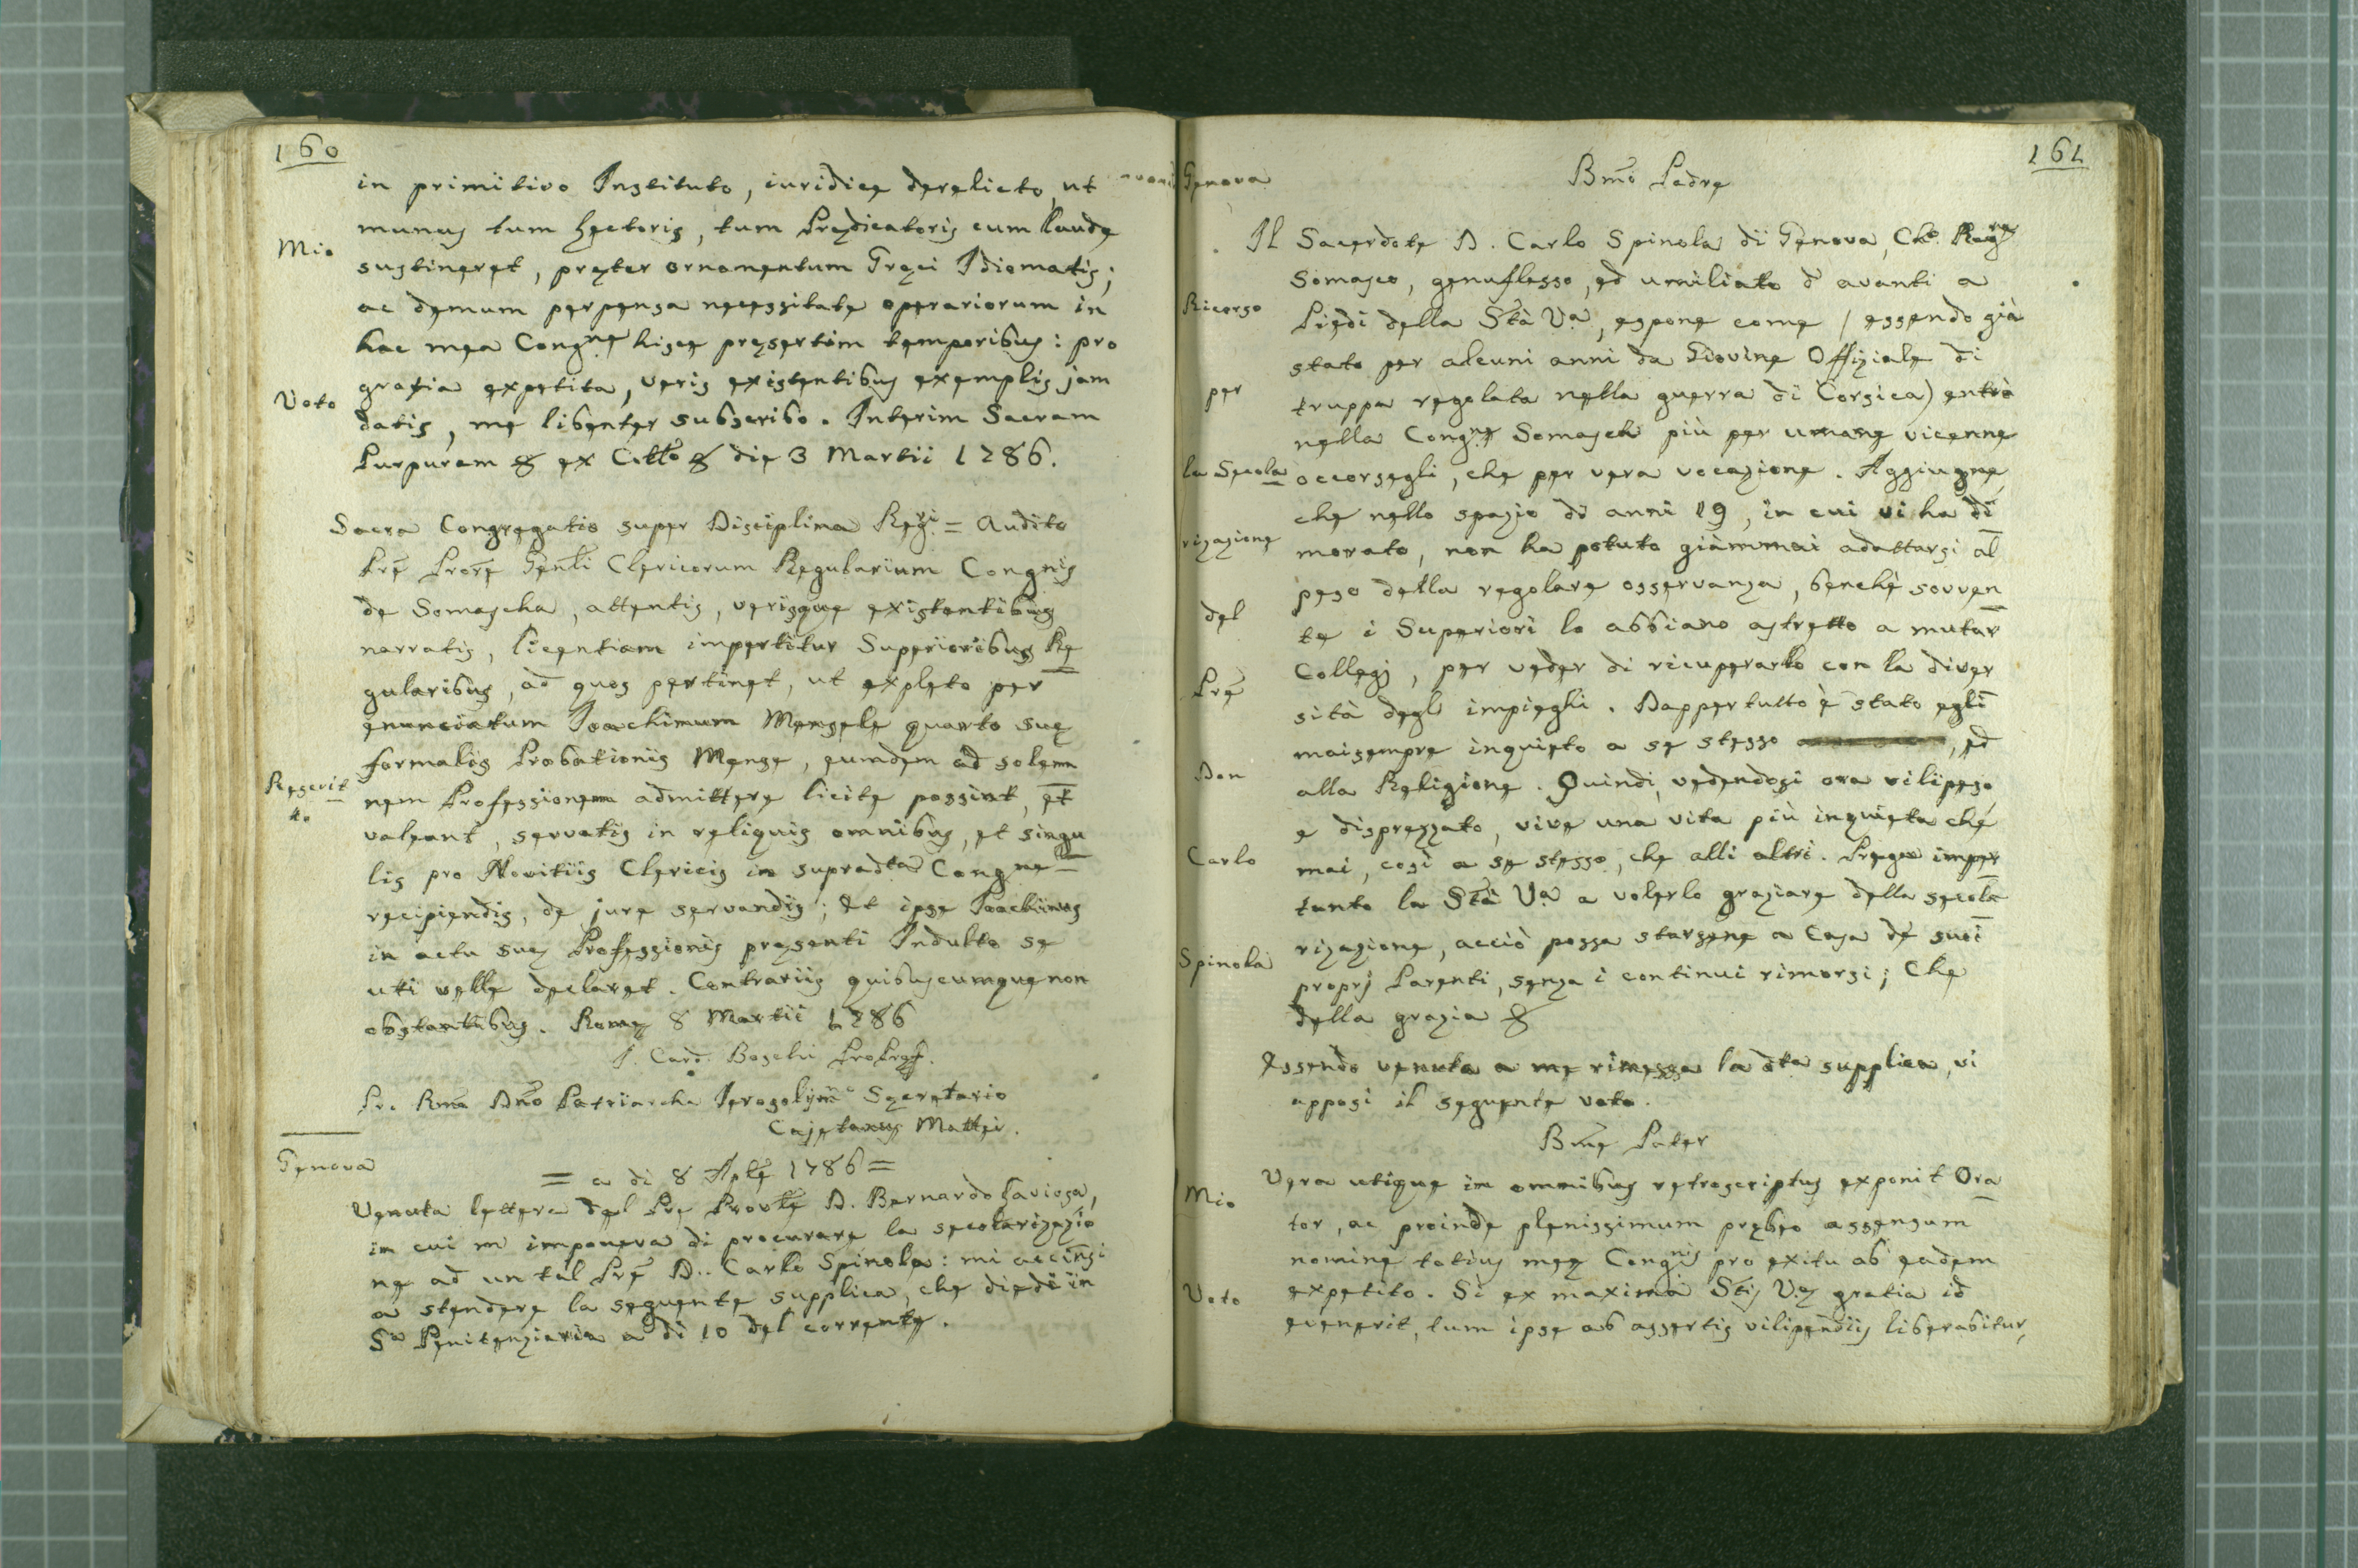 160
in primitivo Instituto, iuridice derelicto, ut
munus tum Lectoris, tum Prędicatoris cum laude
Mio
sustineret, pręter ornamentum Gręci Idiomatis;
ac demum perpensa necessitate operariorum in
hac mea Congne hisce pręsertim temporibus: pro
gratia expetita, veris existentibus exemplis jam
Voto
datis, me libenter subscribo. Interim Sacram
Purpuram & ex Cttō & die 3 Martii 1786.
Sacra Congregatio super Disciplina Regri = Audito
Prē Prorē Genli Clericorum Regularium Congnis
de Somascha, attentis, verisque existentibus
narratis, licentiam impertitur Superioribus Re
gularibus, ad quos pertinet, ut expleto per
enunciatum Joachimum Mensele quarto suę
formalis Probationis Mense, eumdem ad solem
Rescrit
to
nem Professionem admittere licite possint, et
valeant, servatis in reliquis omnibus, et singu
lis pro Novitiis Clericis in supradta Congne
recipiendis, de jure servandis; Et ipse Joachimus
in actu suę Professionis pręsenti Indulto se
uti velle declaret. Contrariis quibuscumque non
obstantibus. Romę 8 Martii 1786
J. Card. Boschi ProPręf.
Pro Rmō Dnō Patriarcha Jerosolymō Secretario
Cajetanus Mattei.
Genova
= a di 8 Aplē 1786 =
Venuta lettera del Prē Provle D. Bernardo Laviosa,
in cui m' imponeva di procurare la secolarizazio
ne ad un tal Prē D. Carlo Spinola: mi accinsi
a stendere la seguente supplica, che diedi in
Sa Penitenziaria a di 10 del corrente.
161
Genova
Bmō Padre
Il Sacerdote D. Carlo Spinola di Genova, Cho Regre
Somasco, genuflesso, ed umiliato d' avanti a
Ricorso
Piedi della Stà Va, espone come / essendo già
stato per alcuni anni da Giovine Offiziale di
per
truppa regolata nella guerra di Corsica) entrò
nella Congne Somasca più per umane vicenne
la Secola
occorsegli, che per vera vocazione. Aggiugne,
che nello spazio di anni 19, in cui vi ha di
rizazione
morato, non ha potuto giammai adattarsi al
peso della regolare osservanza, benchè soven
del
te i Superiori lo abbiano astretto a mutar
Collegj, per veder di ricuperarlo con la diver
Prē
sità degli impieghi. Dappertutto è stato egli
maisempre inquieto a se stesso, ed
Don
alla Religione. Quindi, vedendosi ora vilipeso
e disprezzato, vive una vita più inquieta che
Carlo
mai, così a se stesso, che alli altri. Prega imper
tanto la Stà Va a volerlo graziare della secola
Spinola
rizazione, acciò possa starsene a Casa de' suoi
proprj Parenti, senza i continui rimorsi; Che
della grazia &
Essendo venuta a me rimessa la dta supplica, vi
apposi il seguente voto.
Bmē Pater
Mio
Vera utique in omnibus retroscriptus exponit Ora
tor, ac proinde plenissimum prębeo assensum
nomine totius meę Congnis pro exitu ab eadem
Voto
expetito. Si ex maxima Stis Vę gratia id
evenerit, tum ipse ab assertis vilipendiis liberabitur,